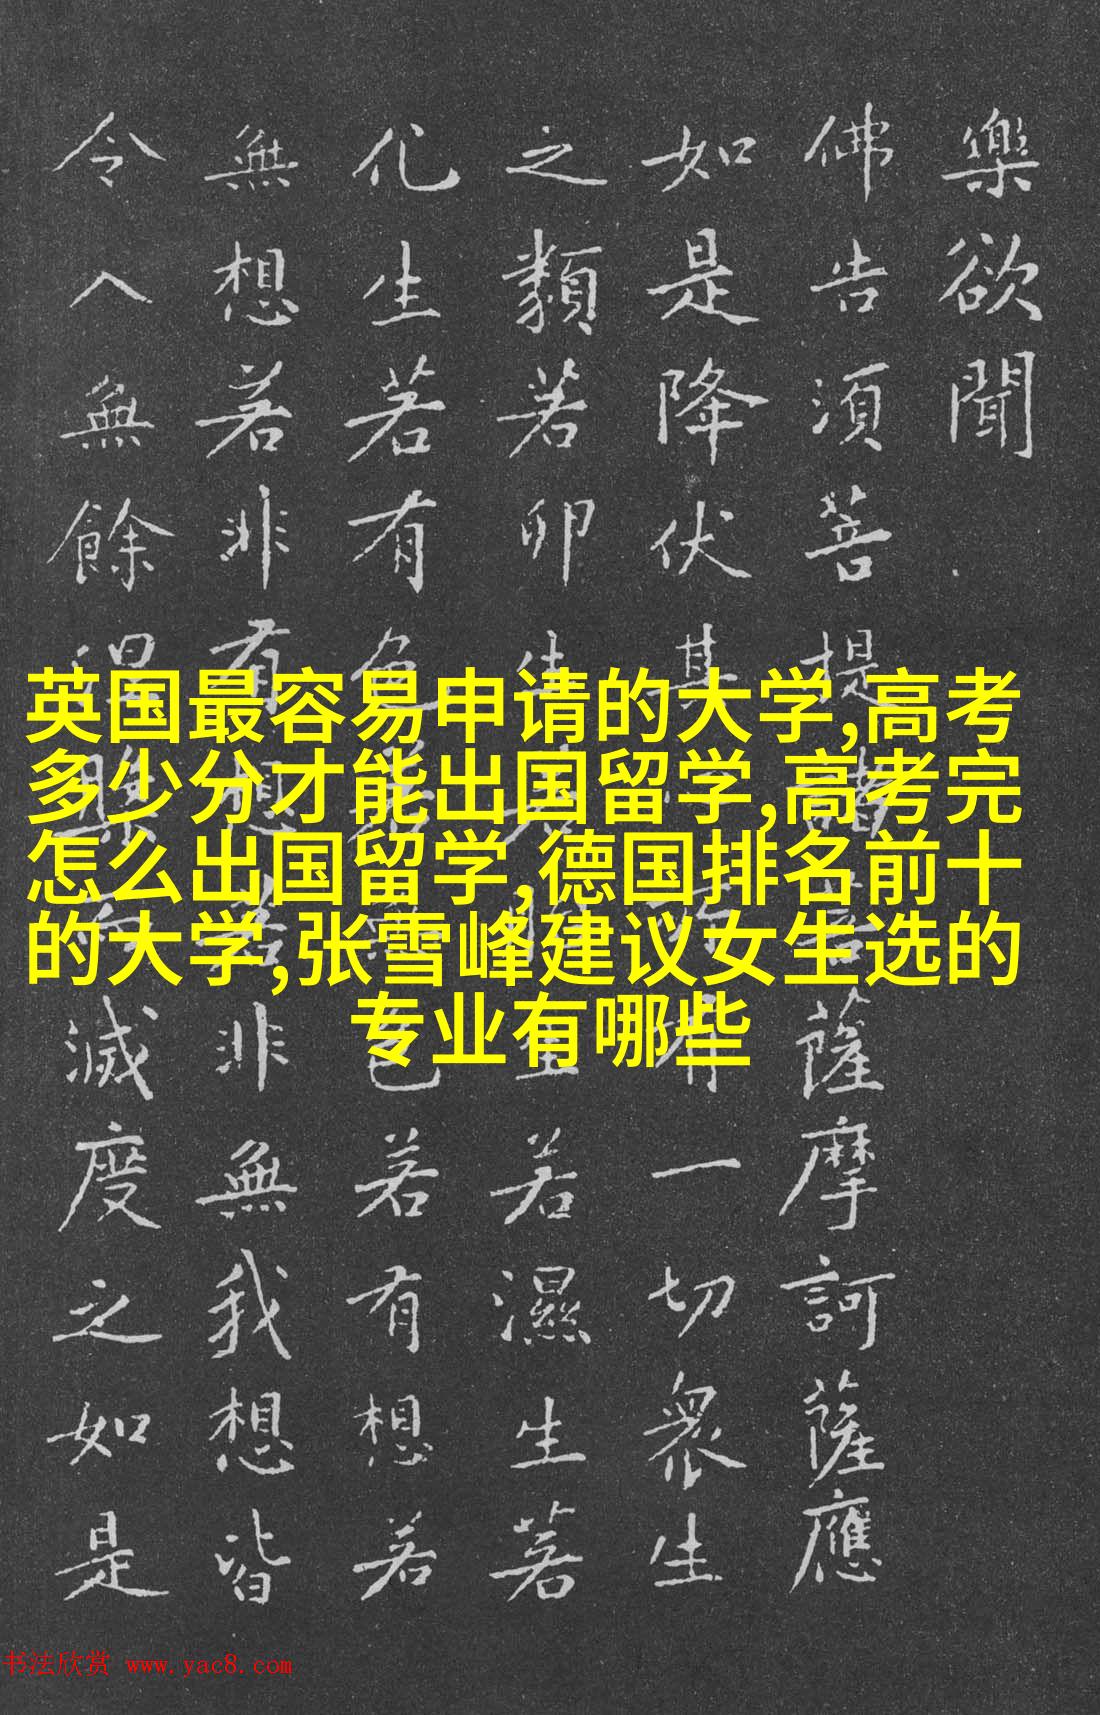 樂欲聞
佛告須菩提諸菩薩摩訶薩應
如是降伏其所有一切衆生
之類若卵生若胎生若濕生若
化生若有色若無色若有想若
無想若非有想若非無我想皆
令入無餘涅而滅度之如是
英国最容易申请的大学,高考
多少分才能出国留学,高考完
怎么出国留学,德国排名前十
的大学,张雪峰建议女生选的
专业有哪些
书法欣赏 www.yac8.com